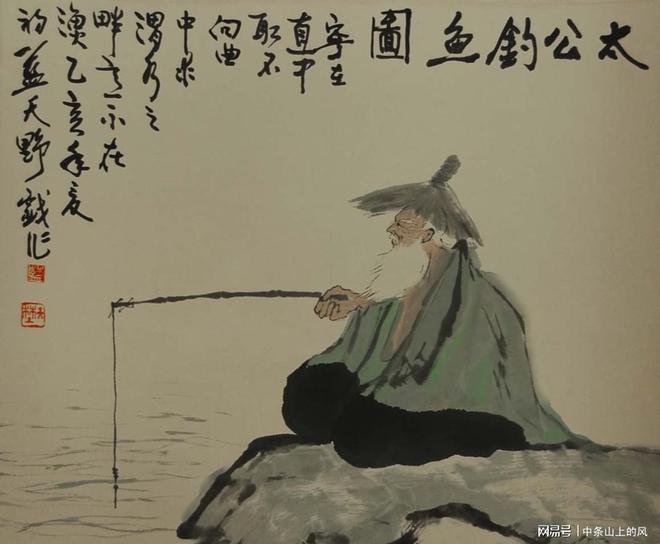 太公釣鱼圖
寧在
直中
取不
向曲
中求
渭水之
畔意不在
漁乙亥年夏
初蓝天野戯作
网易号 | 中条山上的风